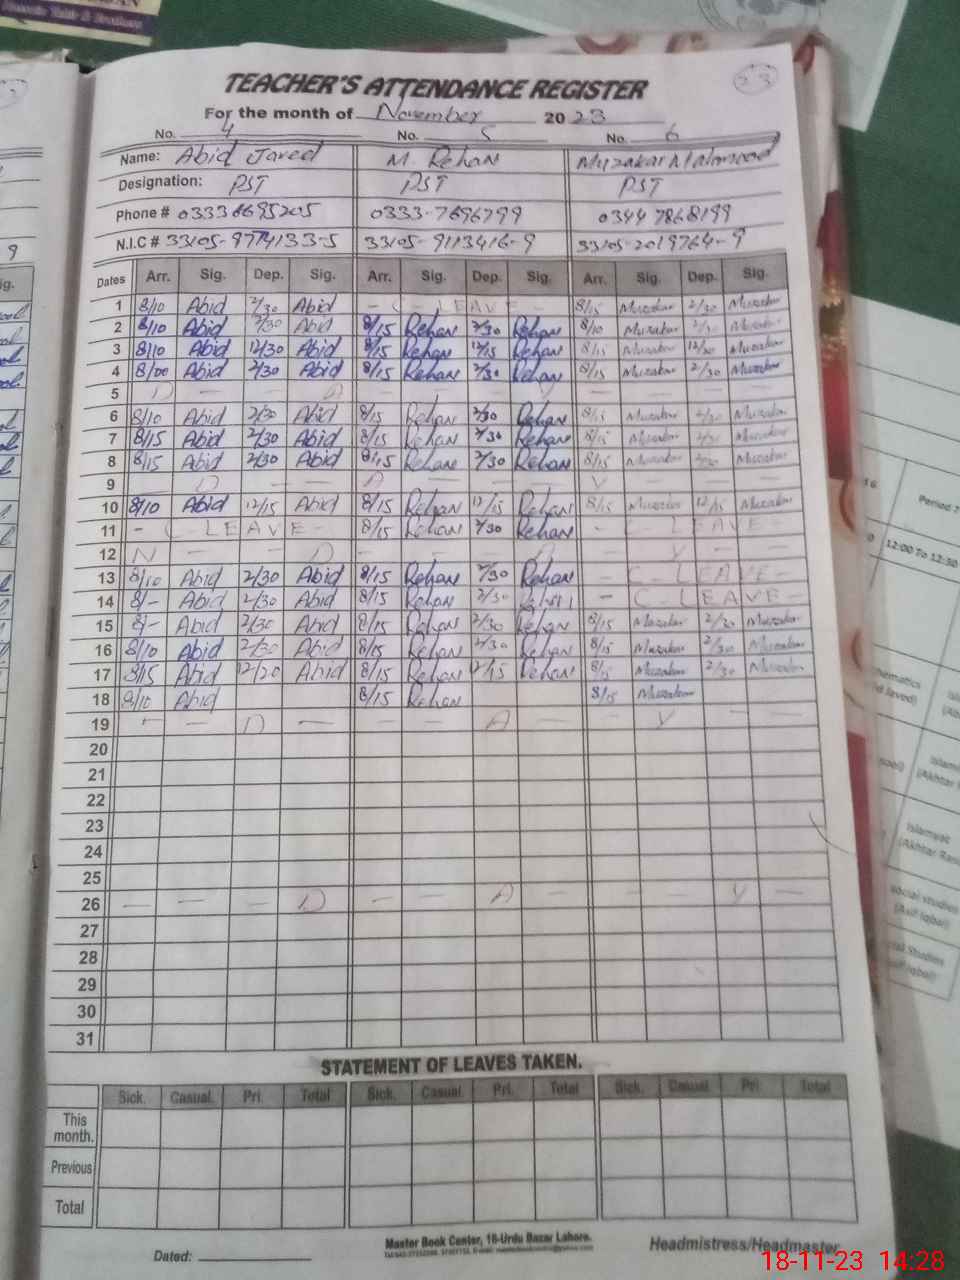 TEACHER'S ATTENDANCE REGISTER
23
For the month of November 2023
No. 4 No. 5 No. 6
Name: Abid Javed M. Rehan Muzakar Mahmood
Designation: PST PST PST
Phone # 0333-7696799 0344 7868199
N.I.C # 33105-9774133-5 33105-9113416-9 33105-2019764-9
Dates Arr. Sig. Dep. Sig. Arr. Sig. Dep. Sig. Arr. Sig. Dep. Sig.
1 8/10 Abid 2/30 Abid - C - LEAVE - 8/15 Muzakar 2/30 Muzakar
2 8/10 Abid 2/30 Abid 8/15 Rehan 2/30 Rehan 8/10 Muzakar 2/30 Muzakar
3 8/10 Abid 12/30 Abid 8/15 Rehan 12/15 Rehan 8/15 Muzakar 12/30 Muzakar
4 8/00 Abid 2/30 Abid 8/15 Rehan 2/30 Rehan 8/15 Muzakar 2/30 Muzakar
5 D - A - Y
6 8/10 Abid 2/30 Abid 8/15 Rehan 2/30 Rehan 8/15 Muzakar 2/30 Muzakar
7 8/15 Abid 2/30 Abid 8/15 Rehan 2/30 Rehan 8/15 Muzakar 2/30 Muzakar
8 8/15 Abid 2/30 Abid 8/15 Rehan 2/30 Rehan 8/15 Muzakar 2/30 Muzakar
9 - D - - A - - - Y - -
10 8/10 Abid 12/15 Abid 8/15 Rehan 12/15 Rehan 8/15 Muzakar 12/15 Muzakar
11 - C - LEAVE - 8/15 Rehan 2/30 Rehan - C - LEAVE -
12 N - - D - - - A - Y - -
13 8/10 Abid 2/30 Abid 8/15 Rehan 2/30 Rehan - C - LEAVE -
14 8/- Abid 2/30 Abid 8/15 Rehan 2/30 Rehan - C - LEAVE -
15 8/- Abid 2/30 Abid 8/15 Rehan 2/30 Rehan 8/15 Muzakar 2/30 Muzakar
16 8/10 Abid 2/30 Abid 8/15 Rehan 2/30 Rehan 8/15 Muzakar 2/30 Muzakar
17 8/15 Abid 12/20 Abid 8/15 Rehan 12/15 Rehan 8/15 Muzakar 2/30 Muzakar
18 8/10 Abid 8/15 Rehan 8/15 Muzakar
19 - - D - - - A - - Y - -
20
21
22
23
24
25
26 - - - D - - A - - - Y -
27
28
29
30
31
STATEMENT OF LEAVES TAKEN.
Sick. Casual. Pri. Total Sick. Casual Pri. Total Sick. Casual Pri. Total
This month.
Previous
Total
Dated:
Master Book Center, 16-Urdu Bazar Lahore.
Headmistress/Headmaster
Period 7
12:00 To 12:30
Islamiat
(Akhtar
social studies
(Asif Iqbal)
18-11-23 14:28